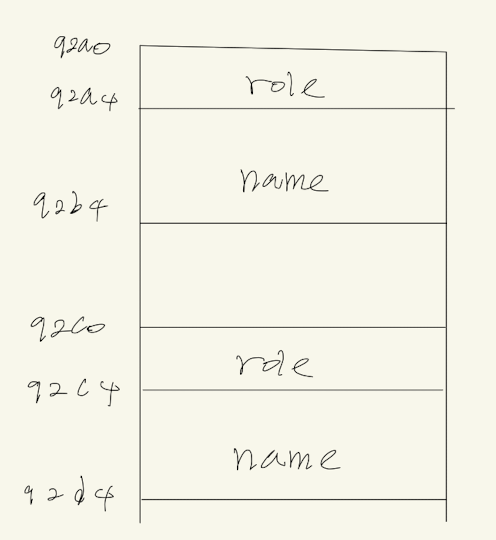 92a0
role
92a4
name
92b4
92c0
role
92c4
name
92d4